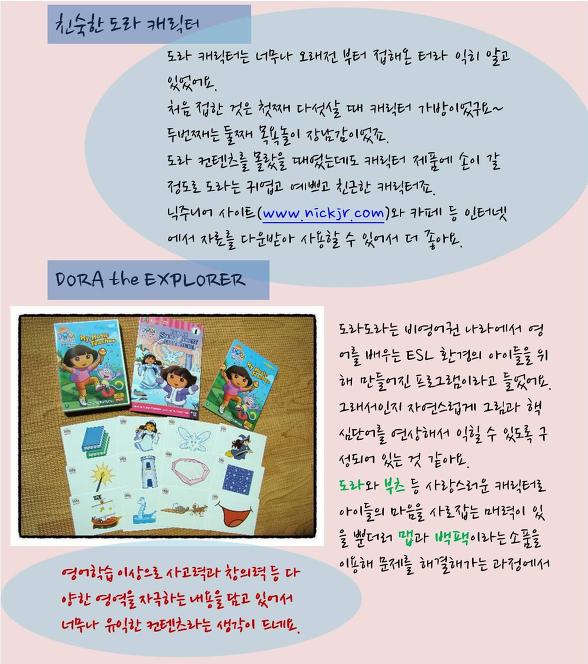 친숙한 도라 캐릭터
도라 캐릭터는 너무나 오래전 부터 접해온 터라 익히 알고
있었어요.
처음 접한 것은 첫째 다섯살 때 캐릭터 가방이었구요~
두번째는 둘째 목욕놀이 장난감이었죠.
도라 컨텐츠를 몰랐을 때였는데도 캐릭터 제품에 손이 갈
정도로 도라는 귀엽고 예쁘고 친근한 캐릭터죠.
닉주니어 사이트(www.nickjr.com)와 카페 등 인터넷
에서 자료를 다운받아 사용할 수 있어서 더 좋아요.
DORA the EXPLORER
도라도라는 비영어권 나라에서 영
어를 배우는 ESL 환경의 아이들을 위
해 만들어진 프로그램이라고 들었어요.
그래서인지 자연스럽게 그림과 핵
심단어를 연상해서 익힐 수 있도록 구
성되어 있는 것 같아요.
도라와 부츠 등 사랑스러운 캐릭터로
아이들의 마음을 사로잡는 매력이 있
을 뿐더러 맵과 백팩이라는소품을
이용해 문제를 해결해가는 과정에서
영어학습 이상으로 사고력과 창의력 등 다
양한 영역을 자극하는 내용을 담고 있어서
너무나 유익한 컨텐츠라는 생각이 드네요.